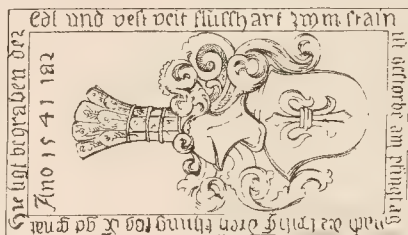 Hie ligt begraben der
edl und vest veit flusshart zwm stain
ist gestorbe am phingtag
nach de heilig dren khunig tag gnat
Ano 1541 iar